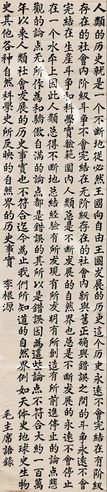 人類的历史就是一个不断地从必然王國向自由王國发展的历史這个历史永远不会完结在有阶级
存在的社会内阶级斗争不会完结在无阶级存在的社会内新與舊正確與錯誤之間的斗争永远不会
完结在生産斗争和科學實驗範圍内人類总是不断发展的自然界也总是不断发展的永远不会停止
在一个水平上因此人類总得不断地总结经验有所发现有所发明有所創造有所前進停止的論点悲
觀的論点无所作為和驕傲自满的論点都是錯誤的其所以是錯誤因為這些論点不符合大约一百万
年以來人類社會发展的历史事實也不符合迄今為止我们所知道的自然界例如天体史地球史生物
史其他各种自然科學史所反映的自然界的历史事實
李根源
毛主席語錄